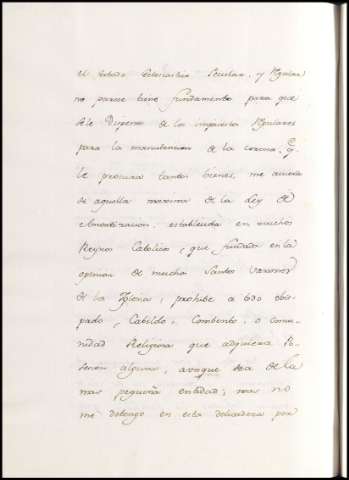 el estado Eclesiastico Secular, y Regular
no parece tiene fundamento para que
se le dispense de los impuestos Regulares
para la manutencion de la corona, q.
le procura tantos bienes, me acuerdo
de aquella maxima de la Ley de
Amortizacion, establecida en muchos
Reynos Catolicos, que fundada en la
opinion de muchos Santos Varones
de la Yglesia; prohibe a todo obis-
pado, Cabildo, Combento, o comu-
nidad Religiosa que adquiera Po-
sesion alguna, aunque sea de la
mas pequeña entidad; mas no
me detengo en esta delicadeza por